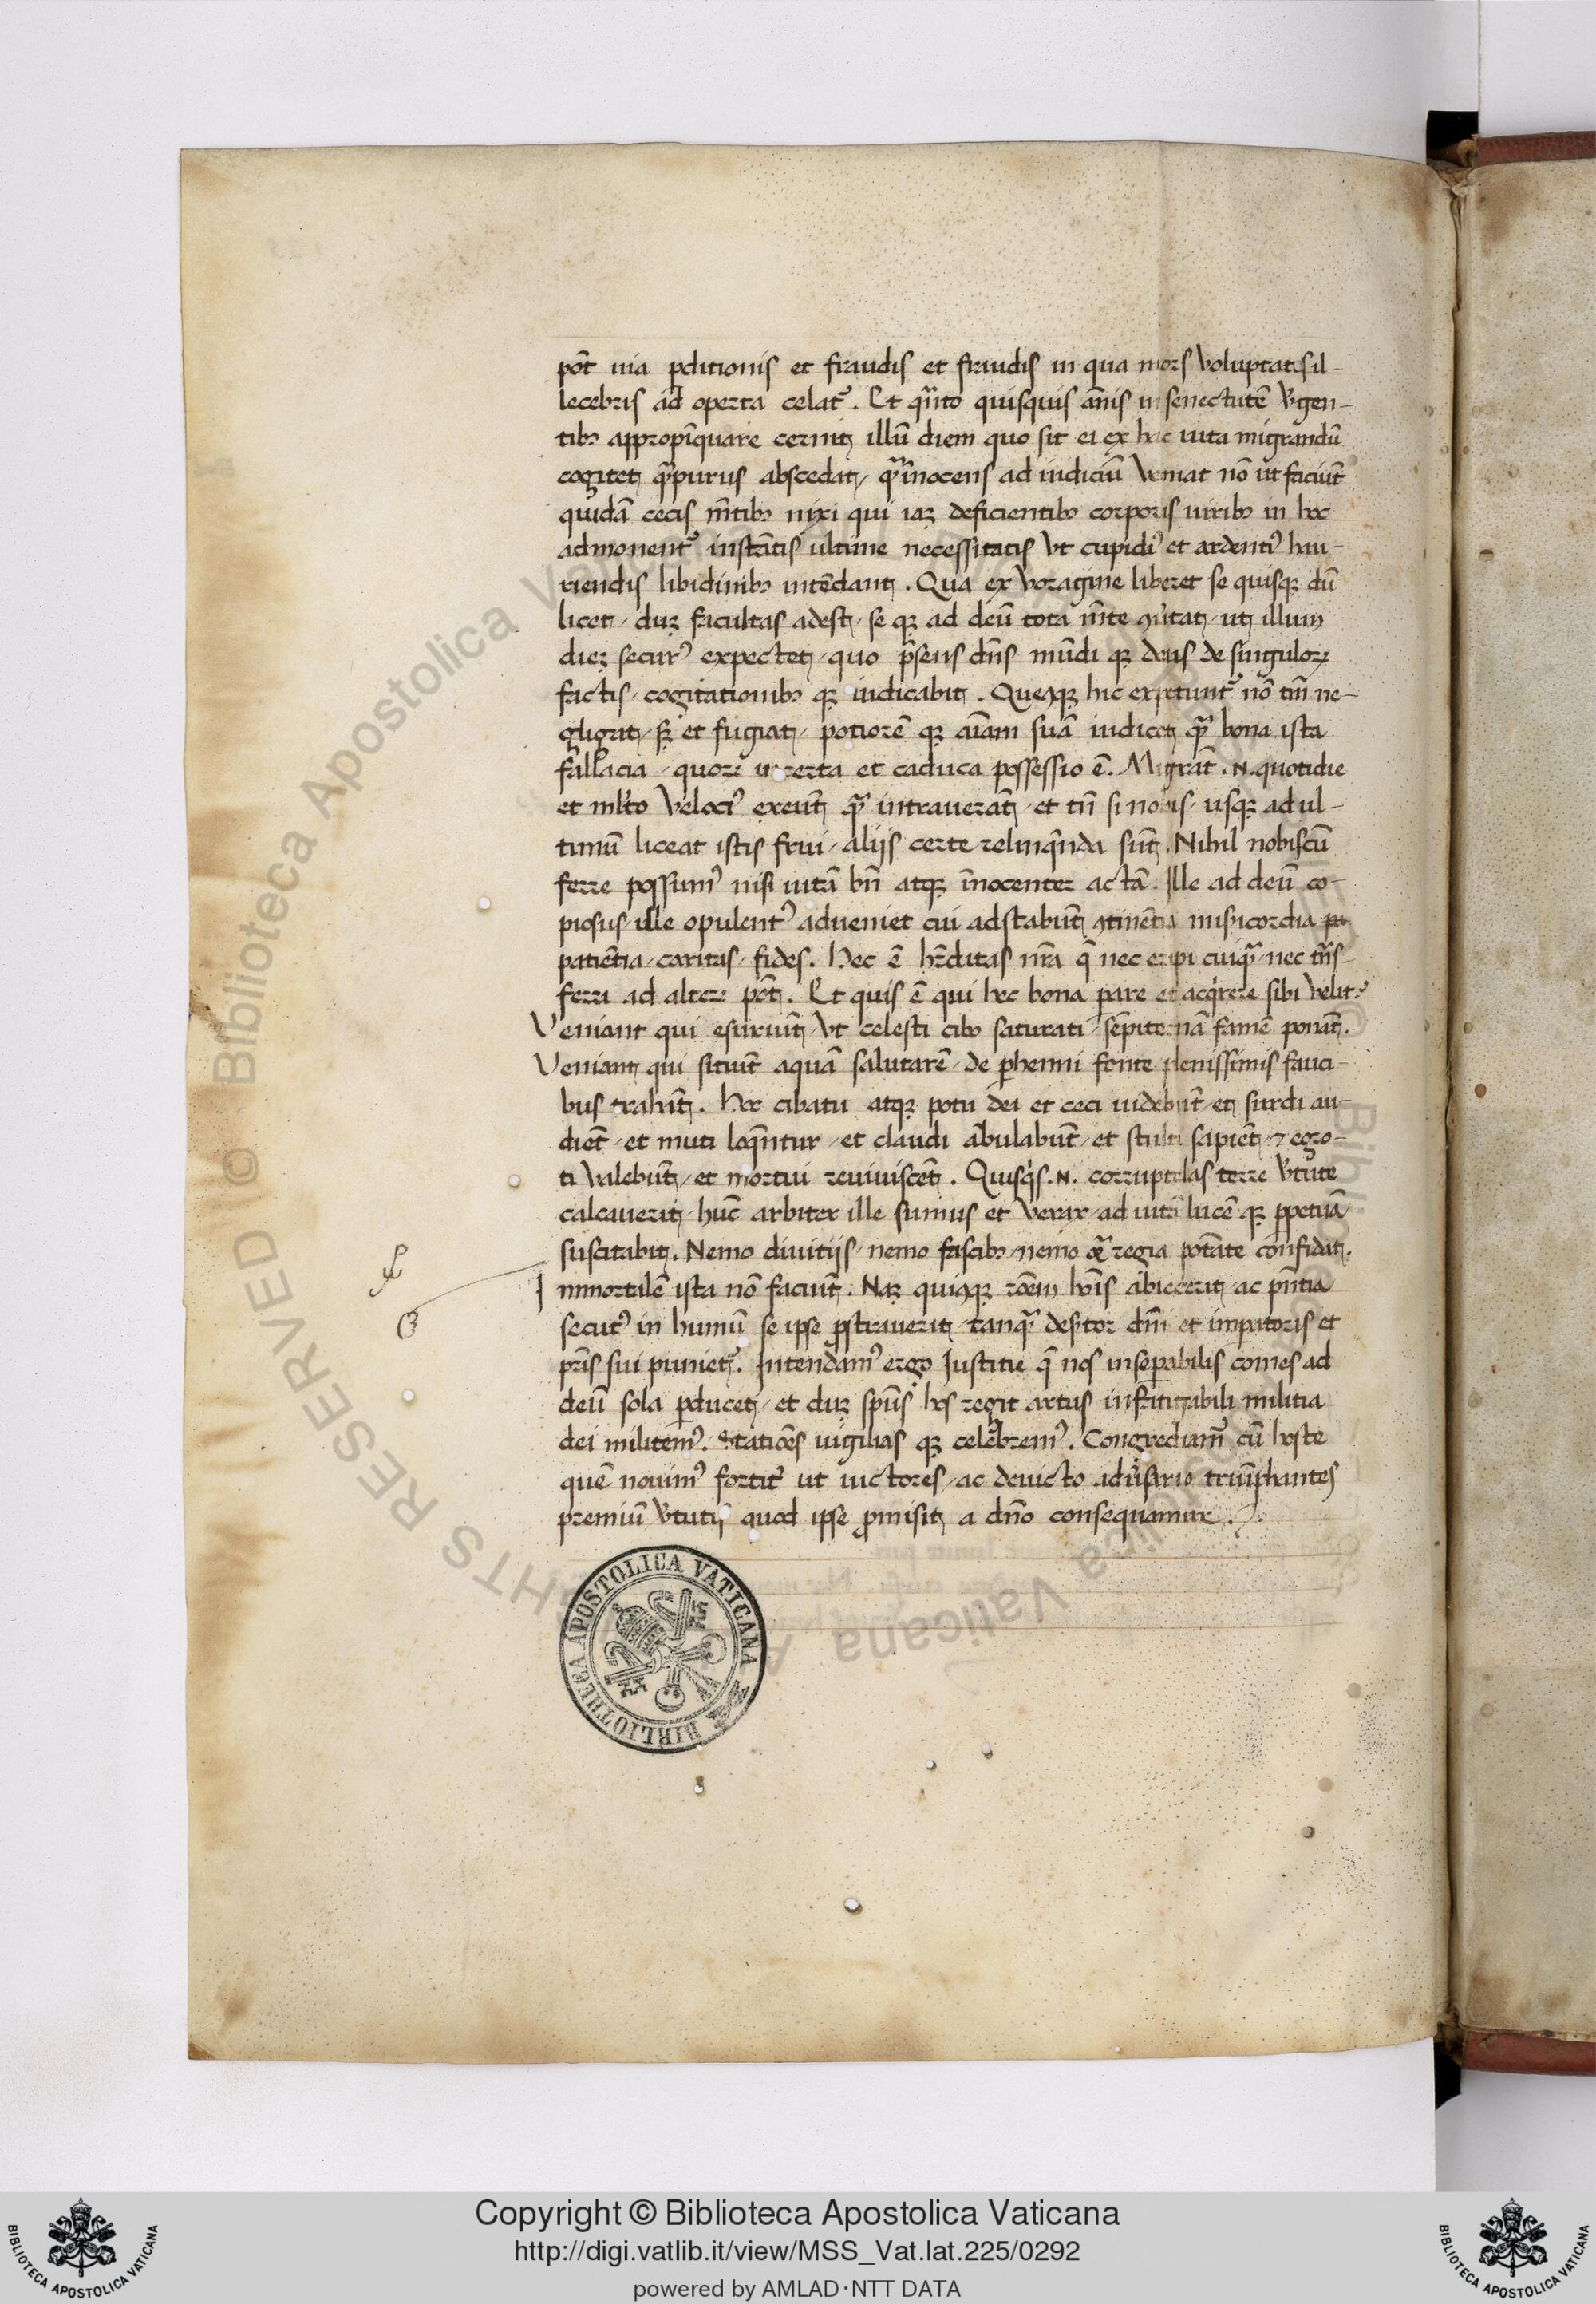 põt uia ꝑditionis et fraudis et fraudis in qua mors voluptatis il-
lecebris ad operta celat᷑. Et qᷓnto quisquis ãnis in senectutẽ v̾gen-
tibꝫ appropĩquare cernit, illũ diem quo sit ei ex hac uita migrandũ
cogitet qᷓ purus abscedat, qᷓ ĩnocens ad iudiciũ veniat nõ ut faciũt
quidã cecis mẽtibꝫ nixi qui iaꝫ deficientibꝫ corporis uiribꝫ in hoc
admonent᷑ instãtis ultime necessitatis vt cupidiꝰ et ardentiꝰ hau-
riendis libidinibꝫ intẽdant. Qua ex voragine liberet se quisqꝫ dũ
licet, duꝫ facultas adest, se qꝫ ad deũ tota mẽte ꝯuˀtat, ut illum
dieꝫ securꝰ expectet, quo p̃sens dñs mũdi qꝫ deus de singuloꝝ
factis, cogitationibꝫ qꝫ iudicabit. Queqꝫ hic expetunt᷑ nõ tm̃ ne-
gligat, sꝫ et fugiat, potiorẽ qꝫ aĩam suã iudicet qᷓ bona ista
fallacia, quoꝝ incerta et caduca possessio ẽ. Migrãt .N. quotidie
et ml̃to velociꝰ exeũt, qᷓ intrauerãt, et tñ si nobis, usqꝫ ad ul-
timũ liceat istis frui, aliis certe relinqᷓnda sũt. Nihil nobiscũ
ferre possumꝰ nisi uitã bñ atqꝫ ĩnocenter actã. Ille ad deũ co-
piosus, ille opulentꝰ adueniet cui adstabũt ꝯtinẽtia misˀicordia pa
patiẽtia, caritas, fides. Hec ẽ hẽditas nr̃a q̃ nec eripi cuiqᷓ, nec trãs-
ferri ad alteꝝ põt. Et quis ẽ qui hec bona ꝑare et acqͥrere sibi velit?
Veniant qui esuriũt, vt celesti cibo saturati, sẽpiternã famẽ ponãt.
Veniant qui sitiũt aquã salutarẽ, de ꝑhenni fonte plenissimis fauci-
bus trahãt. Hoc cibatu atqꝫ potu dei et ceci uidebũt, et surdi au-
diẽt, et muti loqᷓntur, et claudi ãbulabũt, et stulti sapiẽt, ⁊ egro-
ti valebũt, et mortui reuiuiscẽt. Quisqͥs .N. corruptelas terre v̾tute
calcauerit, hũc arbiter ille sumus et verax, ad uitã lucẽ qꝫ ꝑpetuã
suscitabit. Nemo diuitiis, nemo fascibꝫ, nemo regia potãte confidat.
Inmortalẽ ista nõ faciũt. Naꝫ quiqꝫ roẽm hoĩs abiecerit, ac pñtia
secutꝰ in humũ se ipse ꝓstrauerit, tanqᷓ desˀtor dñi et imperatoris et
pr̃is sui puniet᷑. Intendamꝰ ergo Iustitie q̃ nos inseꝑabilis comes ad
deũ sola ꝑducet, et duꝫ sp̃us hos regit artus infatigabili militia
dei militemꝰ. Statiões uigilias qꝫ celebremꝰ. Congrediamˀ cũ hoste
quẽ nouimꝰ fortitˀ ut uictores, ac deuicto aduˀsario triũphantes
premiũ v̾tutis quod ipse ꝓmisit, a dño consequamur.
BIBLIOTHECA APOSTOLICA VATICANA
© Biblioteca Apostolica Vaticana
Copyright © Biblioteca Apostolica Vaticana
http://digi.vatlib.it/view/MSS_Vat.lat.225/0292
powered by AMLAD·NTT DATA
BIBLIOTECA APOSTOLICA VATICANA
BIBLIOTECA APOSTOLICA VATICANA